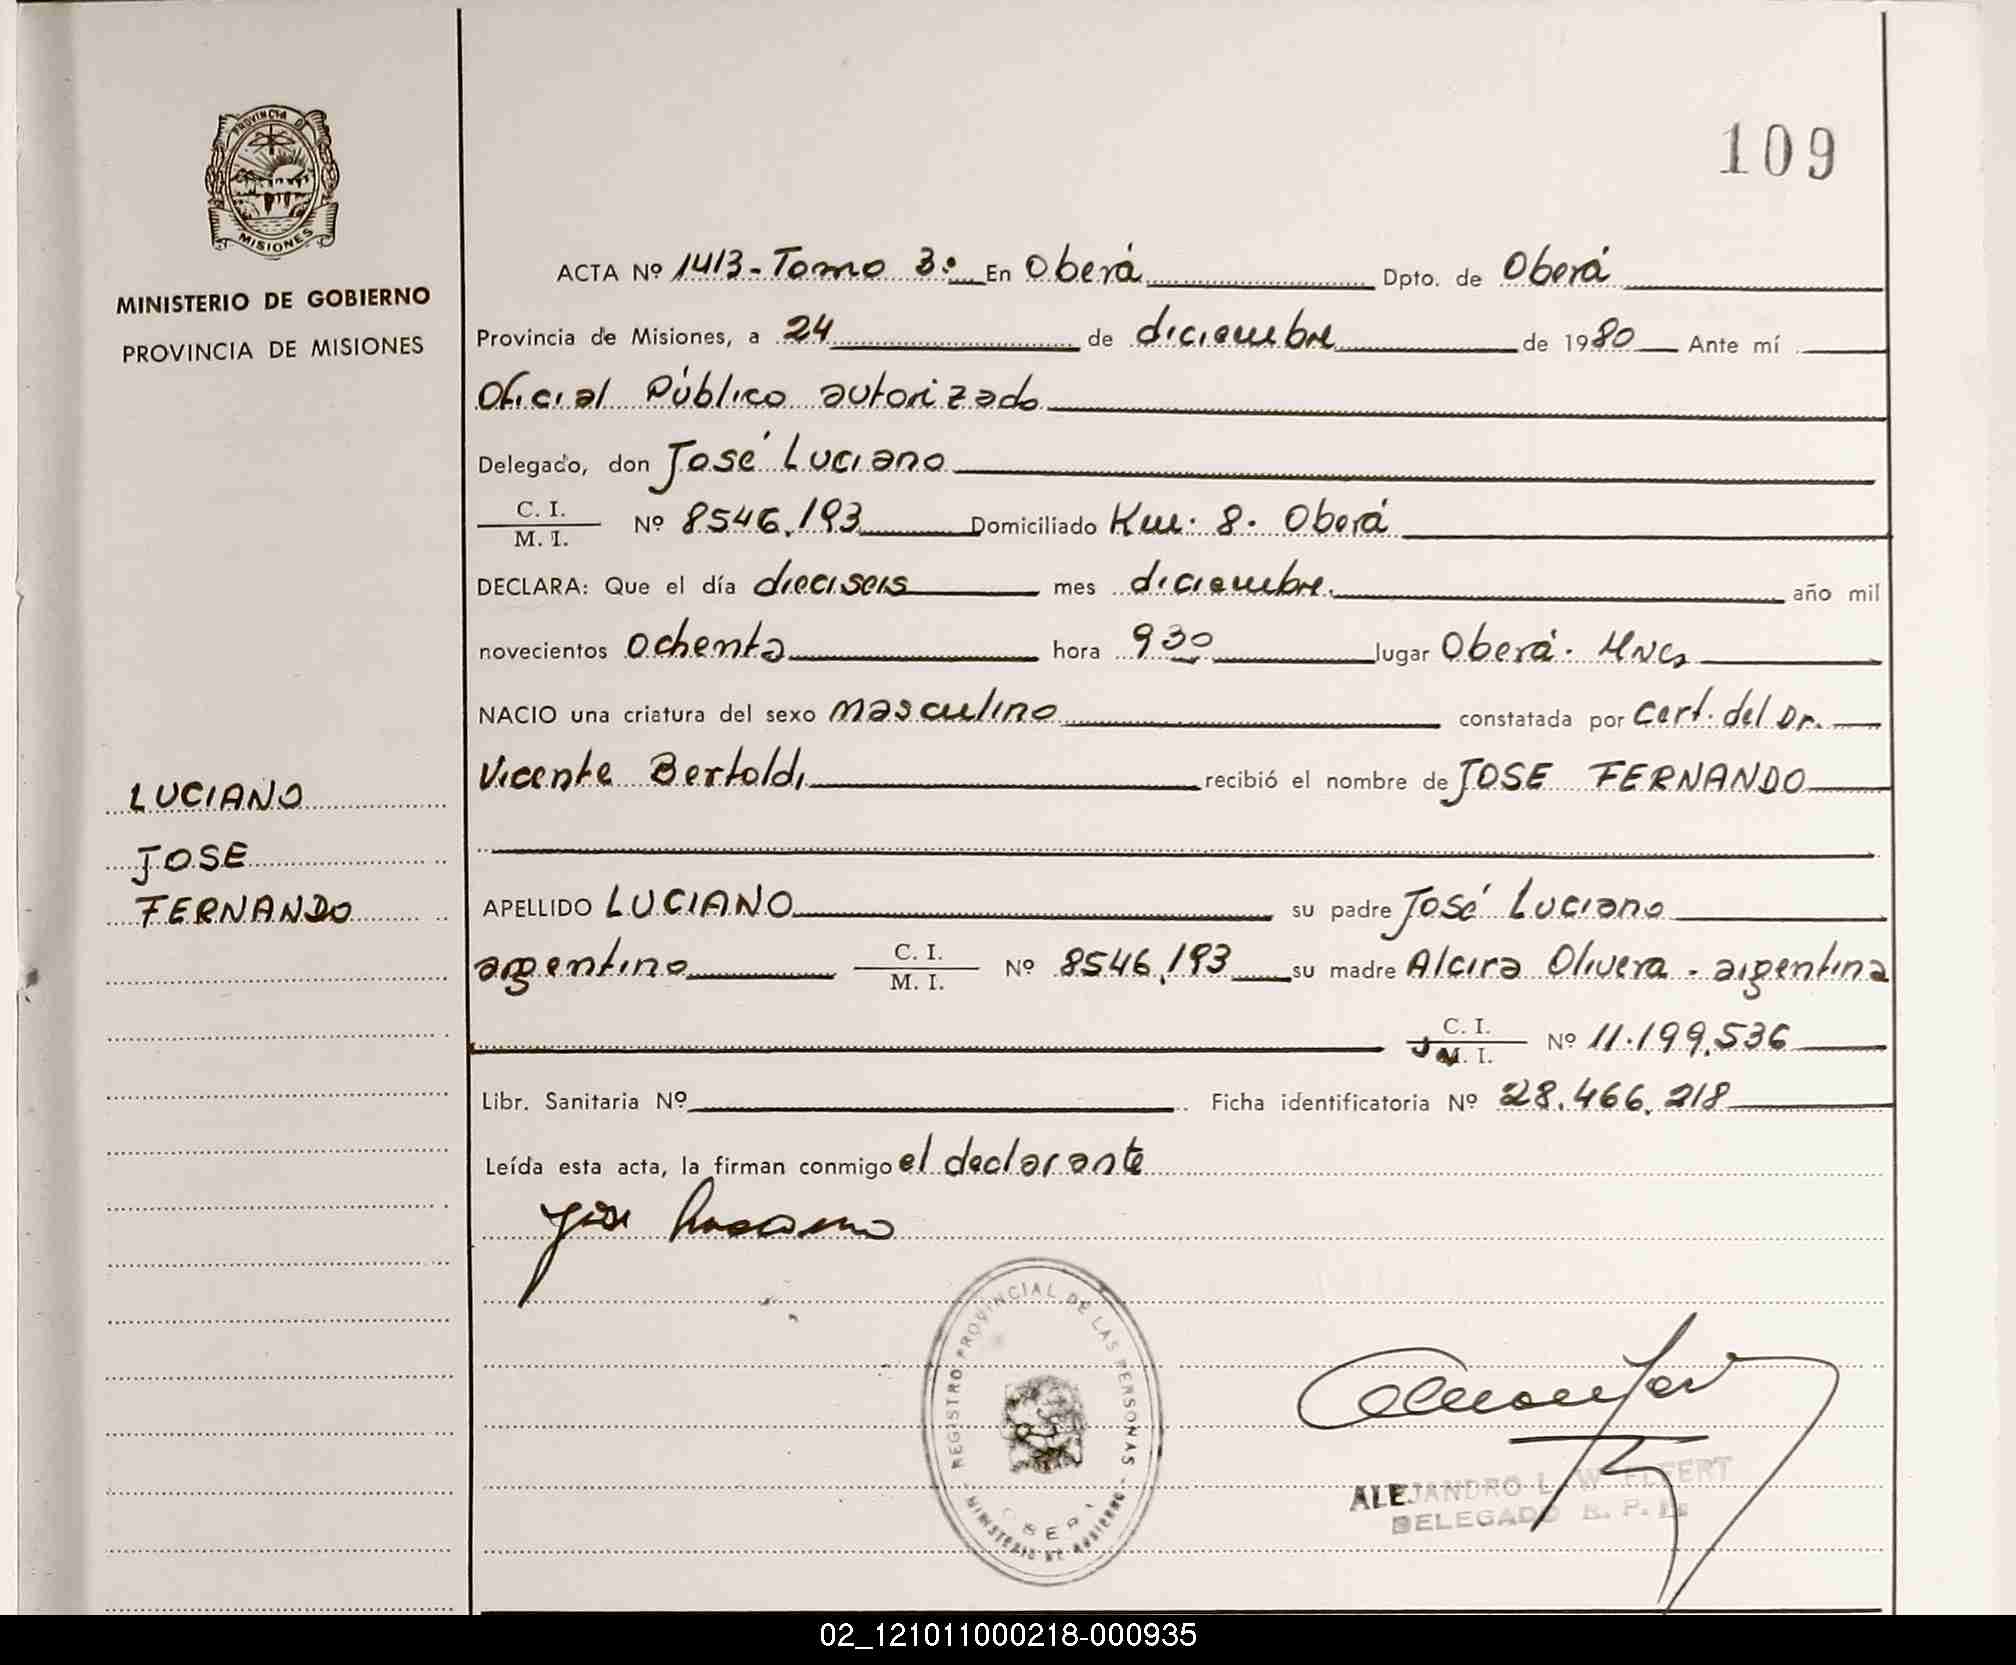 109
PROVINCIA DE
MISIONES
MINISTERIO DE GOBIERNO
PROVINCIA DE MISIONES
LUCIANO
JOSE
FERNANDO
ACTA Nº 1413 - Tomo 3º En Oberá Dpto. de Oberá
Provincia de Misiones, a 24 de diciembre de 1980 Ante mí
Oficial Público autorizado
Delegado, don José Luciano
C. I.
M. I. Nº 8546.193 Domiciliado Km. 8. Oberá
DECLARA: Que el día dieciseis mes diciembre. año mil
novecientos ochenta hora 930 lugar Oberá. Mnes
NACIO una criatura del sexo masculino constatada por cert. del Dr.
Vicente Bertoldi recibió el nombre de JOSE FERNANDO
APELLIDO LUCIANO su padre José Luciano
argentino C. I.
M. I. Nº 8546.193 su madre Alcira Olivera - argentina
C. I.
M. I. Nº 11.199.536
Libr. Sanitaria Nº Ficha identificatoria Nº 28.466.218
Leída esta acta, la firman conmigo el declarante
José Luciano
REGISTRO PROVINCIAL DE LAS PERSONAS
OBERA
MINISTERIO DE GOBIERNO
ALEJANDRO L. W.
DELEGADO R. P. P.
02_121011000218-000935